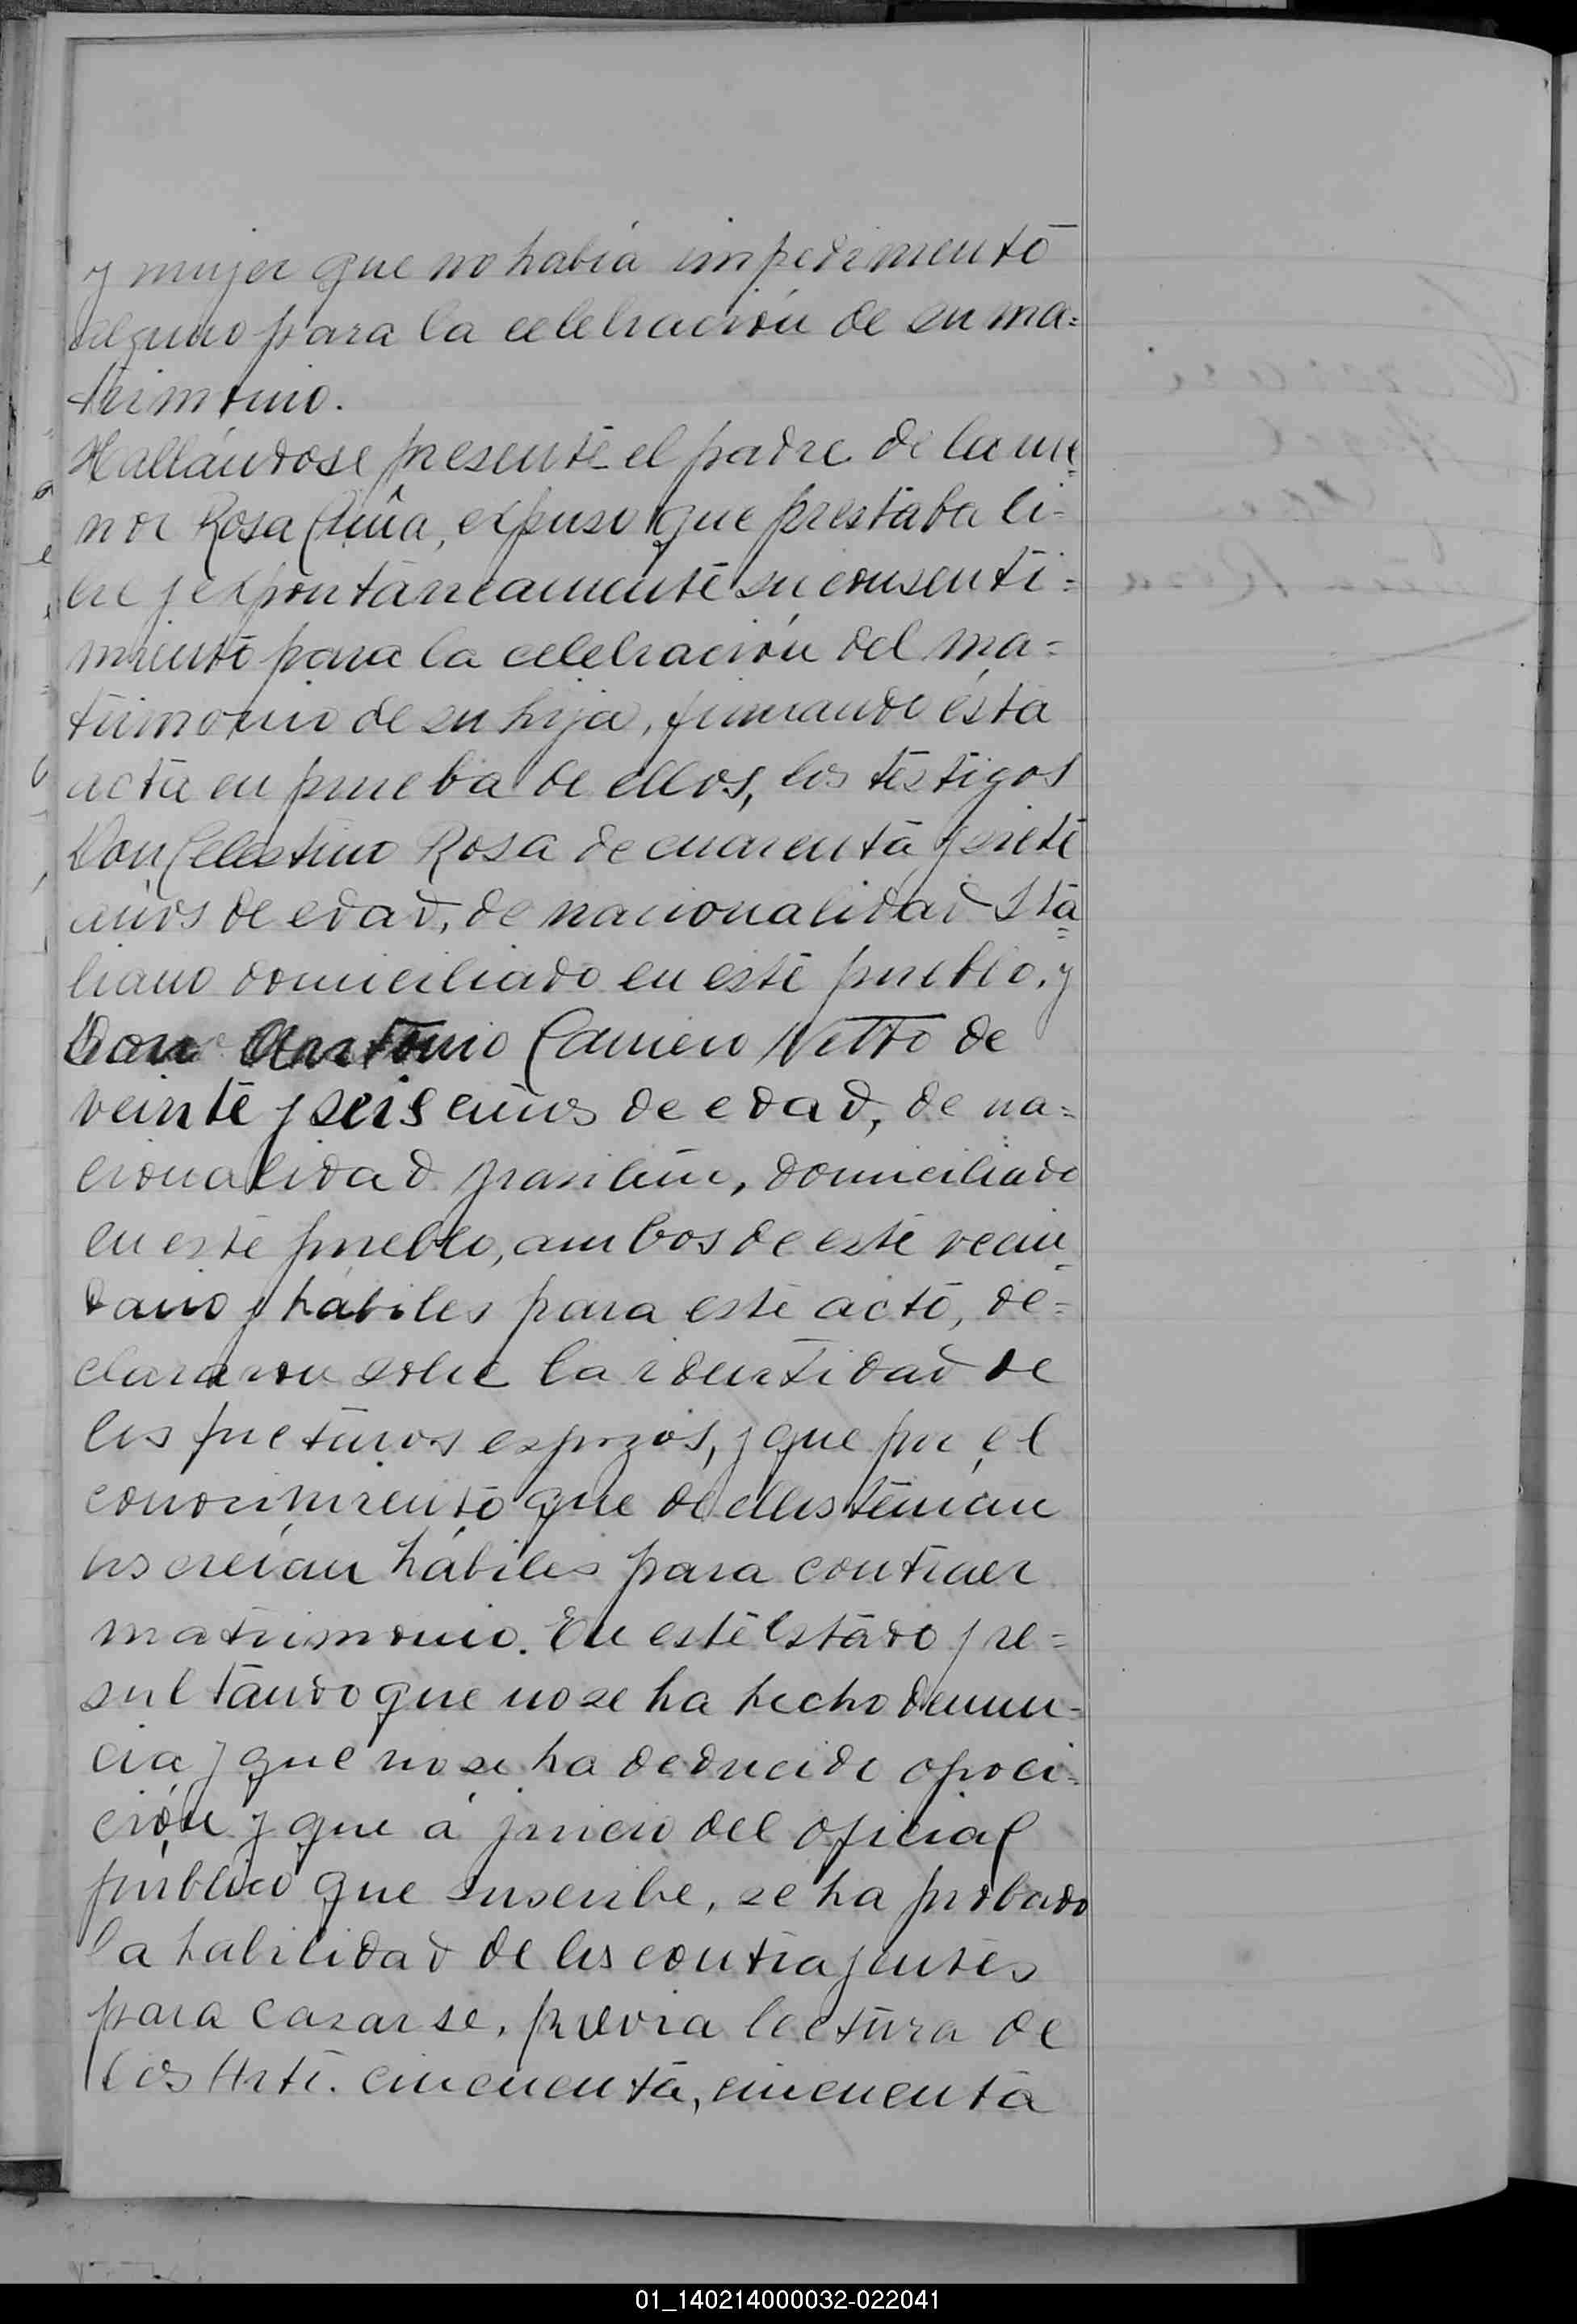 y mujer que no habia impedimento
alguno para la celebración de su ma=
trimonio.
Hallándose presente el padre de la me=
nor Rosa expuso que prestaba li=
bre y expontáneamente su consenti=
miento para la celebración del ma=
trimonio de su hija, firmando esta
acta en prueba de ellos, los testigos
Don Celestino Rosa de cuarenta y siete
años de edad, de nacionalidad Ita=
liano domiciliado en este pueblo, y
Don Antonio Netto de
veinte y seis años de edad, de na=
cionalidad domiciliado
en este pueblo, ambos de este vecin=
dario y hábiles para este acto, de=
clararon sobre la identidad de
los futuros espozos, y que por el
conocimiento que de ellos tenian
los creían hábiles para contraer
matrimonio. En este estado y re=
sultando que no se ha hecho denun=
cia y que no se ha deducido opoci=
ción y que á juicio del oficial
público que suscribe, se ha probado
la habilidad de los contrayentes
para casarse, previa lectura de
los Arti. cincuenta, cincuenta
01_140214000032-022041